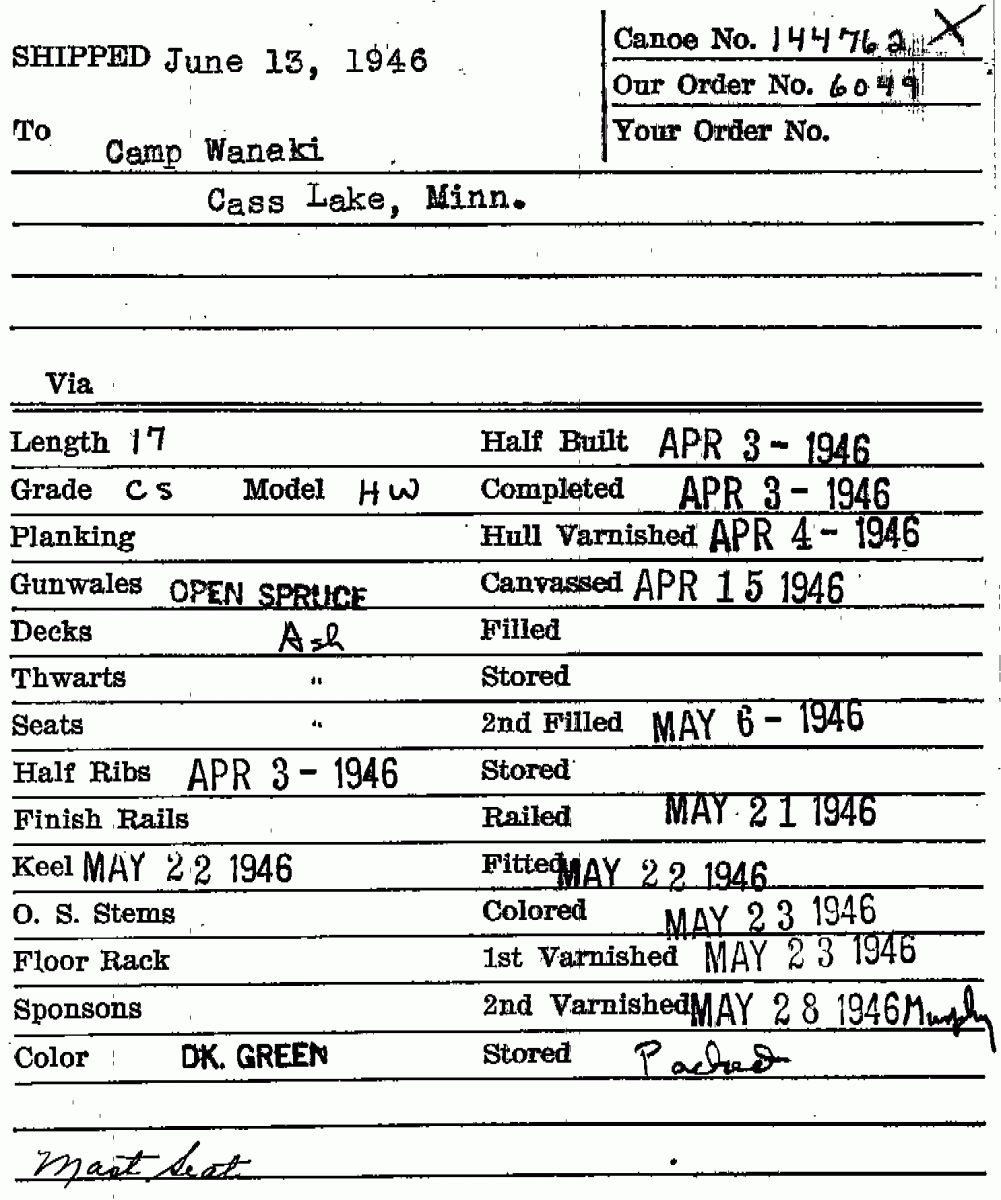 SHIPPED June 13, 1946
Canoe No. 144762 X
Our Order No. 6049
To Camp Wanaki
Your Order No.
Cass Lake, Minn.
Via
Length 17 Half Built APR 3 - 1946
Grade CS Model HW Completed APR 3 - 1946
Planking Hull Varnished APR 4 - 1946
Gunwales OPEN SPRUCE Canvassed APR 15 1946
Decks Ash Filled
Thwarts " Stored
Seats " 2nd Filled MAY 6 - 1946
Half Ribs APR 3 - 1946 Stored
Finish Rails Railed MAY 21 1946
Keel MAY 22 1946 Fitted MAY 22 1946
O. S. Stems Colored MAY 23 1946
Floor Rack 1st Varnished MAY 23 1946
Sponsons 2nd Varnished MAY 28 1946 Murphy
Color DK. GREEN Stored Packed
Mast Seat